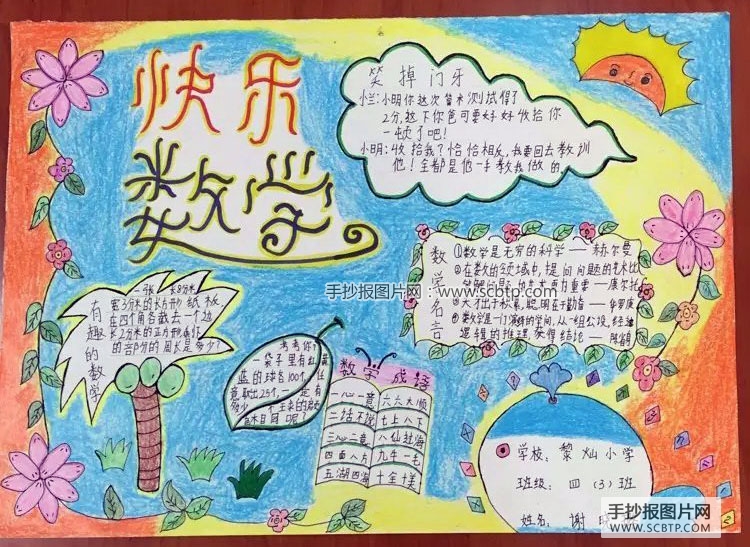 快乐
数学
笑掉门牙
小兰:小明你这次
测试得了
2分,这下你爸可要好好收拾你
一顿了吧!
小明:收拾我?恰恰相反,我要回去教训
他!全都是他一手教我做的
数学名言
①数学是无穷的科学——赫尔曼
②在数学的领域中,提
问题的艺术比
③天才出于积累,聪明在于勤奋——华罗庚
逻辑的推理,获得结论——陈省身
有趣的数学
一张长8分米
宽3分米的长方形纸板
在四个角各截去一个边
长2分米的正方形,
的
部分的周长是多少?
考考你
一袋子里有红黄
蓝的球各100个,
取出25个,一定有
多少
数学成语
一心一意 六六大顺
二话不说 七上八下
三心二意 八仙过海
四面八方 九牛一毛
五湖四海 十全十美
手抄报图片网:www.scbtp.com
学校:黎灿小学
班级:四(3)班
姓名:谢
手抄报图片网
WWW.SCBTP.COM